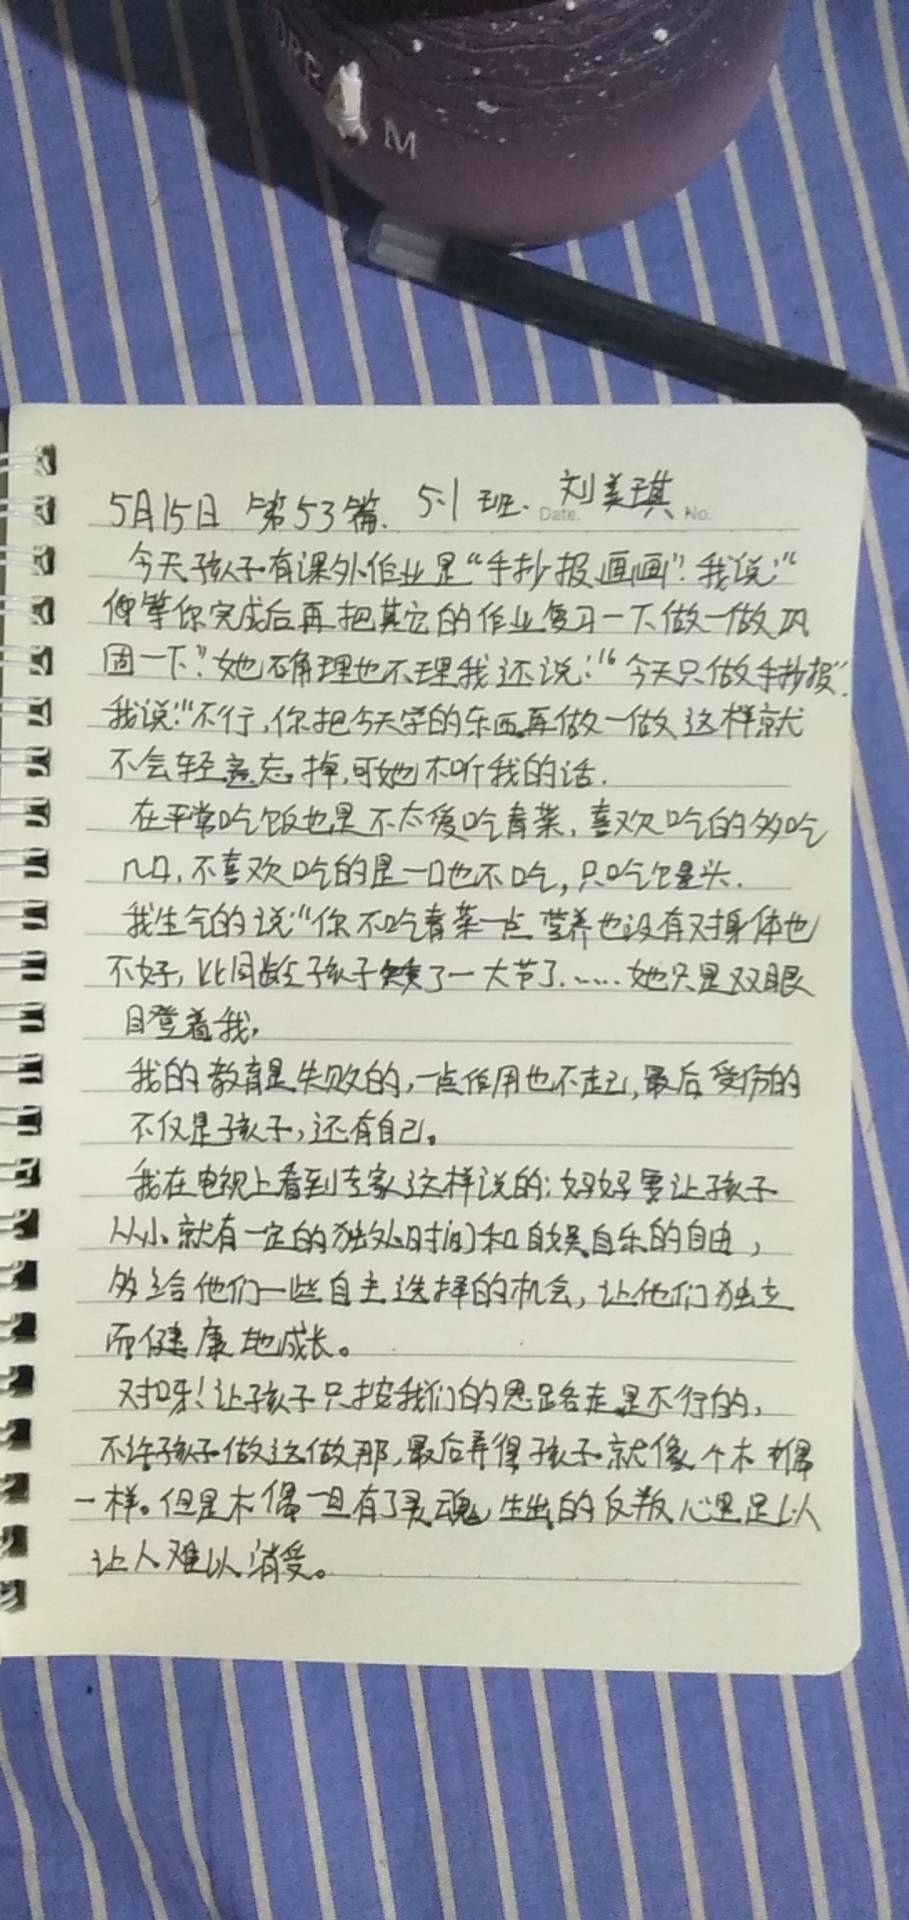 DRE M
5月15日 第53篇. 5.1班. 刘美琪
Date. No.
今天孩子有课外作业是“手抄报画画”. 我说:“
你等你完成后再把其它的作业复习一下做一做巩
固一下”. 她确理也不理我还说:“今天只做手抄报”.
我说:“不行,你把今天学的东西再做一做这样就
不会轻意忘掉,可她不听我的话.
在平常吃饭也是不太爱吃青菜,喜欢吃的多吃
几口,不喜欢吃的是一口也不吃,只吃个馒头.
我生气的说“你不吃青菜一点营养也没有对身体也
不好,比同龄孩子矮了一大节了.…… 她只是双眼
瞪着我,
我的教育是失败的,一点作用也不起,最后受伤的
不仅是孩子,还有自己。
我在电视上看到专家这样说的:妈妈要让孩子
从小就有一定的独处时间和自娱自乐的自由,
多给他们一些自主选择的机会,让他们独立
而健康地成长。
对呀!让孩子只按我们的思路走是不行的,
不许孩子做这做那,最后弄得孩子就像个木偶
一样。但是木偶一旦有了灵魂生出的反叛心里足以
让人难以消受。